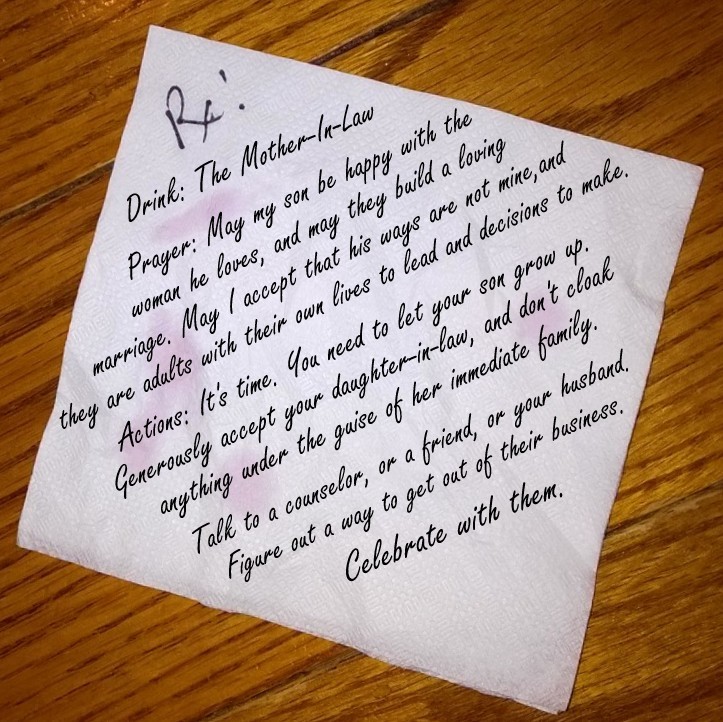 Rx:
Drink: The Mother-In-Law
Prayer: May my son be happy with the
woman he loves, and may they build a loving
marriage. May I accept that his ways are not mine,and
they are adults with their own lives to lead and decisions to make.
Actions: It's time. You need to let your son grow up.
Generously accept your daughter-in-law, and don't cloak
anything under the guise of her immediate family.
Talk to a counselor, or a friend, or your husband.
Figure out a way to get out of their business.
Celebrate with them.